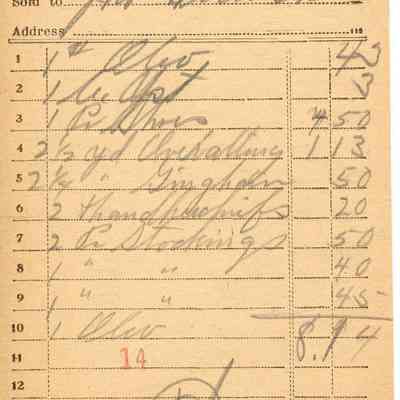 Sold to
Address 11S
1 1 # Oleo 43
2 1 3
3 1 Pr Shoes 4 50
4 2 1/2 yd Overalling 1 13
5 2 1/4 " Gingham 50
6 2 Handkerchiefs 20
7 2 Pr Stockings 50
8 1 " " 40
9 1 " " 45
10 1 Oleo 8.14
11 14
12